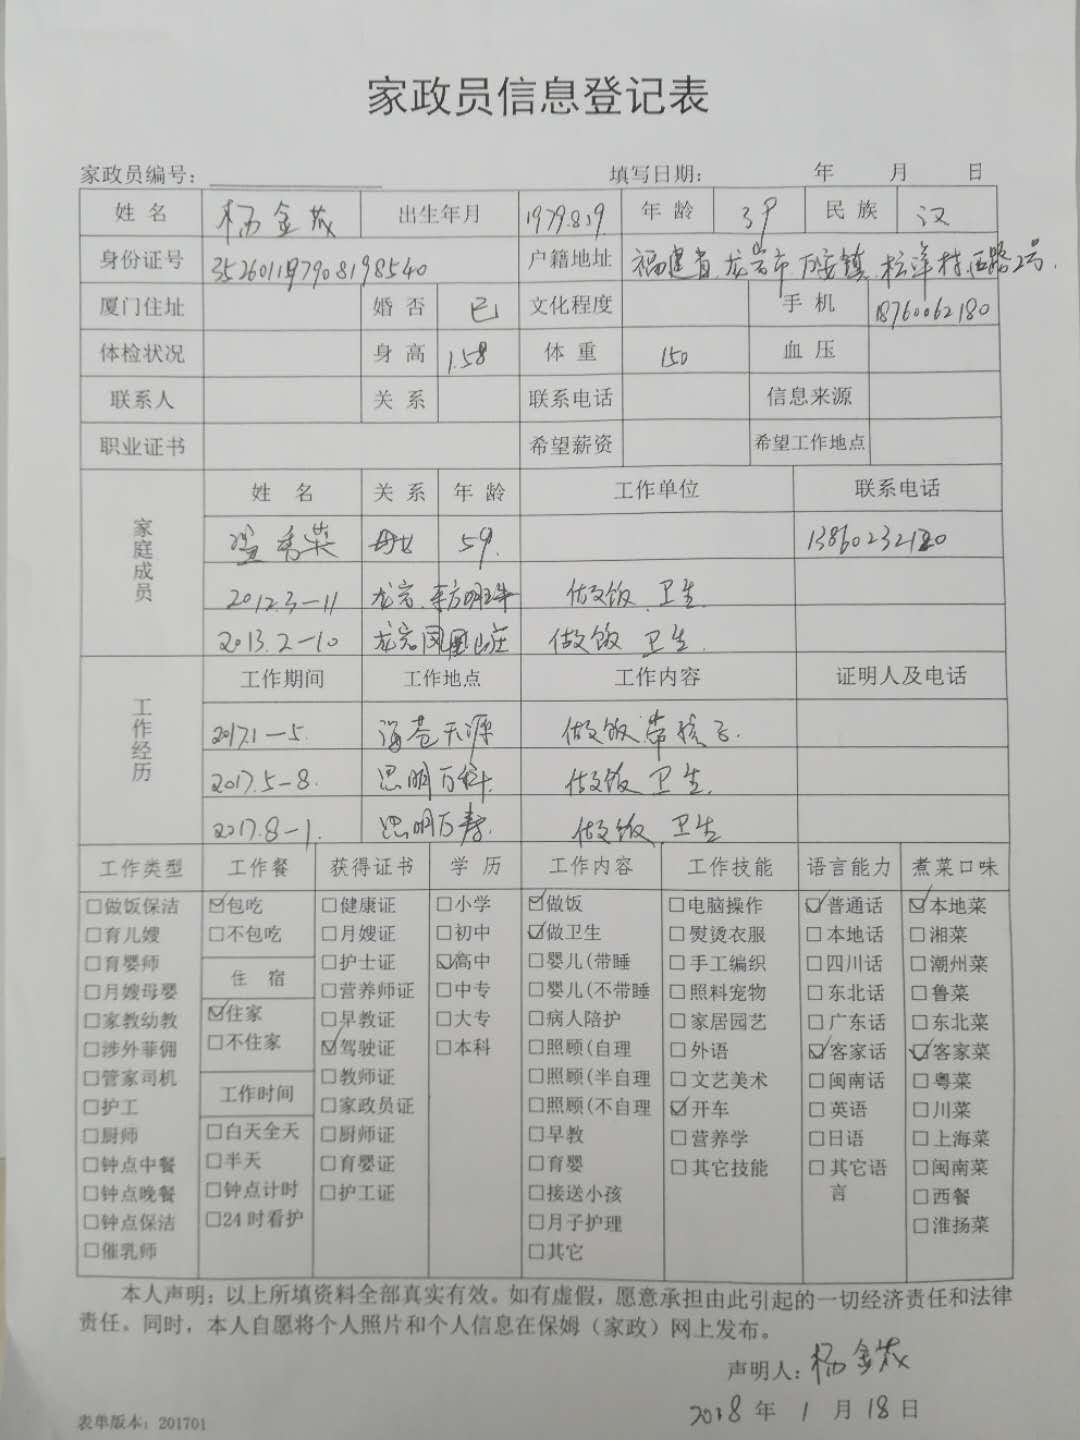 家政员信息登记表
家政员编号： 填写日期： 年 月 日
姓名 杨金茂 出生年月 1979.8.19 年龄 39 民族 汉
身份证号 352601197908198540 户籍地址 福建省龙岩市万安镇松洋村西路2号.
厦门住址 婚否 已 文化程度 手机 18760062180
体检状况 身高 1.58 体重 150 血压
联系人 关系 联系电话 信息来源
职业证书 希望薪资 希望工作地点
家庭成员 姓名 关系 年龄 工作单位 联系电话
秀菜 母女 59. 13860232120
2012.3-11 龙岩.东方明珠 做饭.卫生.
2013.2-10 龙岩凤凰山庄 做饭 卫生.
工作经历 工作期间 工作地点 工作内容 证明人及电话
2017.1-5. 海苍天源 做饭带孩子.
2017.5-8. 思明万科. 做饭 卫生.
2017.8-1. 思明万寿. 做饭 卫生
工作类型 工作餐 获得证书 学历 工作内容 工作技能 语言能力 煮菜口味
□做饭保洁 ☑包吃 □健康证 □小学 ☑做饭 □电脑操作 ☑普通话 ☑本地菜
□育儿嫂 □不包吃 □月嫂证 □初中 ☑做卫生 □熨烫衣服 □本地话 □湘菜
□育婴师 住宿 □护士证 ☑高中 □婴儿(带睡 □手工编织 □四川话 □潮州菜
□月嫂母婴 □营养师证 □中专 □婴儿(不带睡 □照料宠物 □东北话 □鲁菜
□家教幼教 ☑住家 □早教证 □大专 □病人陪护 □家居园艺 □广东话 □东北菜
□涉外菲佣 □不住家 ☑驾驶证 □本科 □照顾(自理 □外语 ☑客家话 ☑客家菜
□管家司机 □教师证 □照顾(半自理 □文艺美术 □闽南话 □粤菜
□护工 工作时间 □家政员证 □照顾(不自理 ☑开车 □英语 □川菜
□厨师 □白天全天 □厨师证 □早教 □营养学 □日语 □上海菜
□钟点中餐 □半天 □育婴证 □育婴 □其它技能 □其它语言 □闽南菜
□钟点晚餐 □钟点计时 □护工证 □接送小孩 □西餐
□钟点保洁 □24时看护 □月子护理 □淮扬菜
□催乳师 □其它
本人声明：以上所填资料全部真实有效。如有虚假，愿意承担由此引起的一切经济责任和法律
责任。同时，本人自愿将个人照片和个人信息在保姆（家政）网上发布。
声明人：杨金茂
2018年 1月18日
表单版本：201701